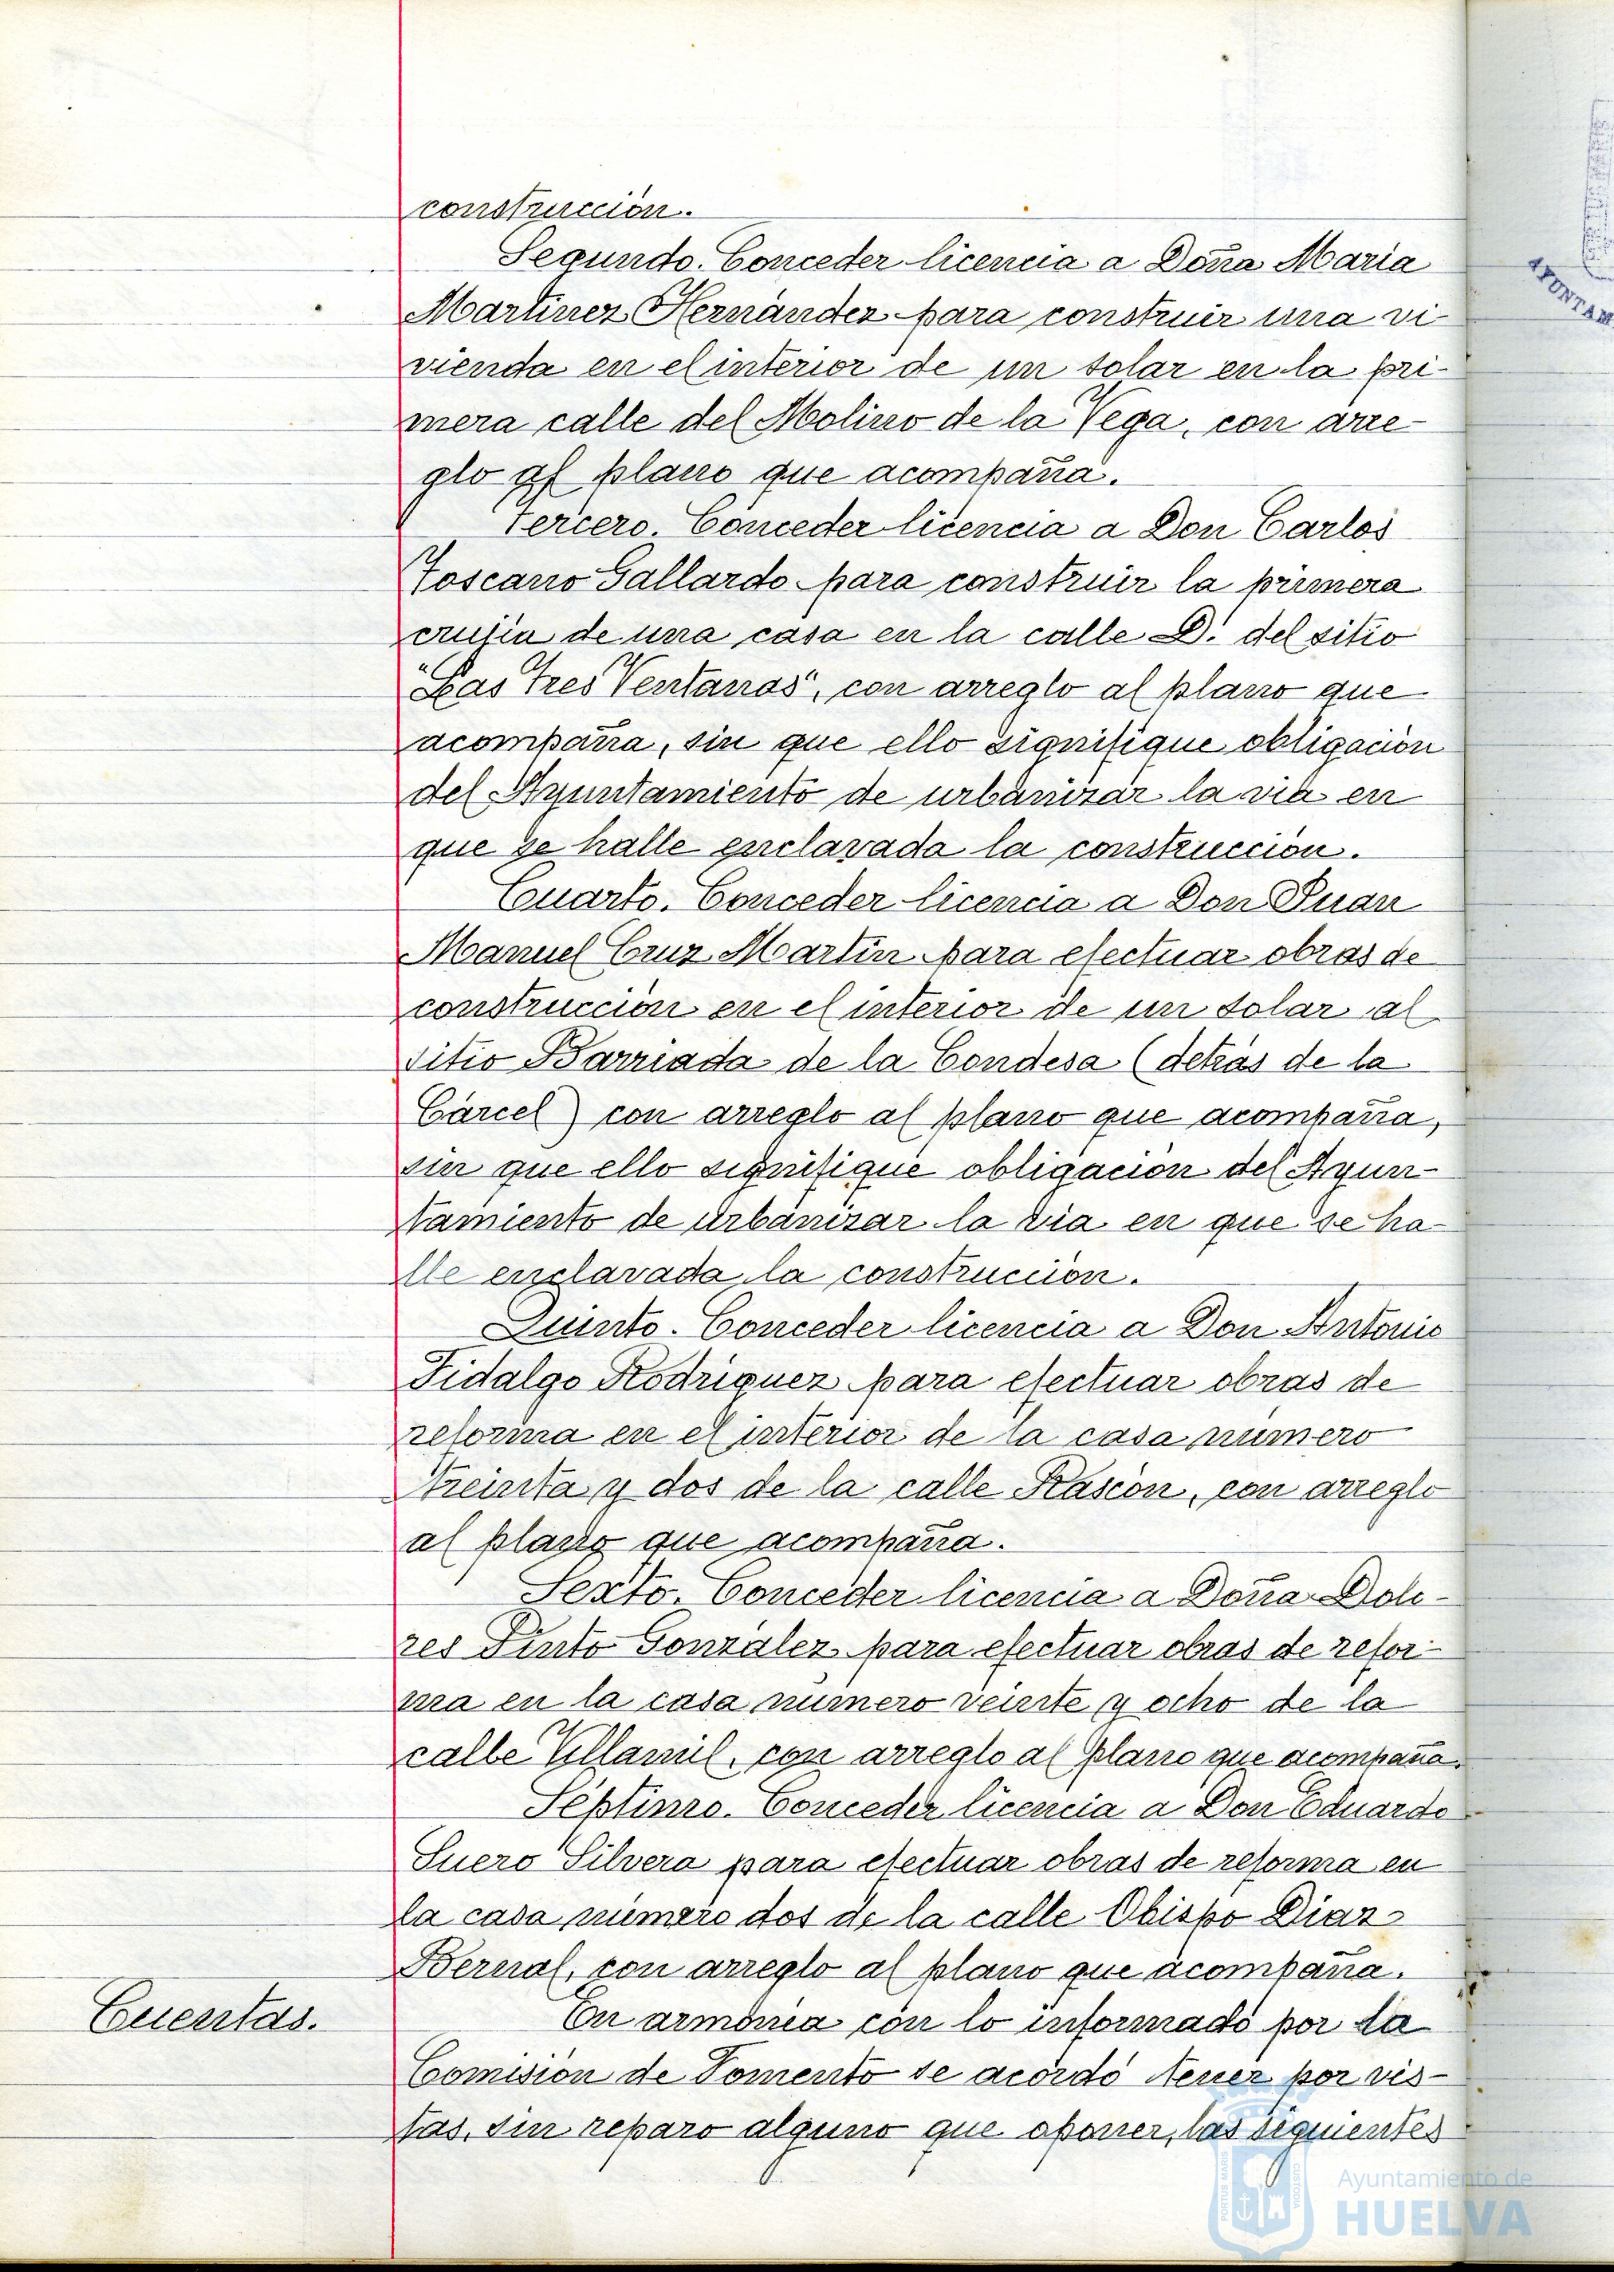 construcción.
Segundo. Conceder licencia a Doña María
Martínez Hernández para construir una vi-
vienda en el interior de un solar en la pri-
mera calle del Molino de la Vega, con arre-
glo al plano que acompaña.
Tercero. Conceder licencia a Don Carlos
Toscano Gallardo para construir la primera
crujía de una casa en la calle D. del sitio
"Las Tres Ventanas", con arreglo al plano que
acompaña, sin que ello signifique obligación
del Ayuntamiento de urbanizar la vía en
que se halle enclavada la construcción.
Cuarto. Conceder licencia a Don Juan
Manuel Cruz Martín para efectuar obras de
construcción en el interior de un solar al
sitio Barriada de la Condesa (detrás de la
Cárcel) con arreglo al plano que acompaña,
sin que ello signifique obligación del Ayun-
tamiento de urbanizar la vía en que se ha-
lle enclavada la construcción.
Quinto. Conceder licencia a Don Antonio
Fidalgo Rodríguez para efectuar obras de
reforma en el interior de la casa número
treinta y dos de la calle Rascón, con arreglo
al plano que acompaña.
Sexto. Conceder licencia a Doña Dolo-
res Pinto González para efectuar obras de refor-
ma en la casa número veinte y ocho de la
calle Villamil, con arreglo al plano que acompaña.
Séptimo. Conceder licencia a Don Eduardo
Suero Silvera para efectuar obras de reforma en
la casa número dos de la calle Obispo Díaz
Bernal, con arreglo al plano que acompaña.
Cuentas.
En armonía con lo informado por la
Comisión de Fomento se acordó tener por vis-
tas, sin reparo alguno que oponer, las siguientes
Ayuntamiento de
HUELVA
AYUNTAM